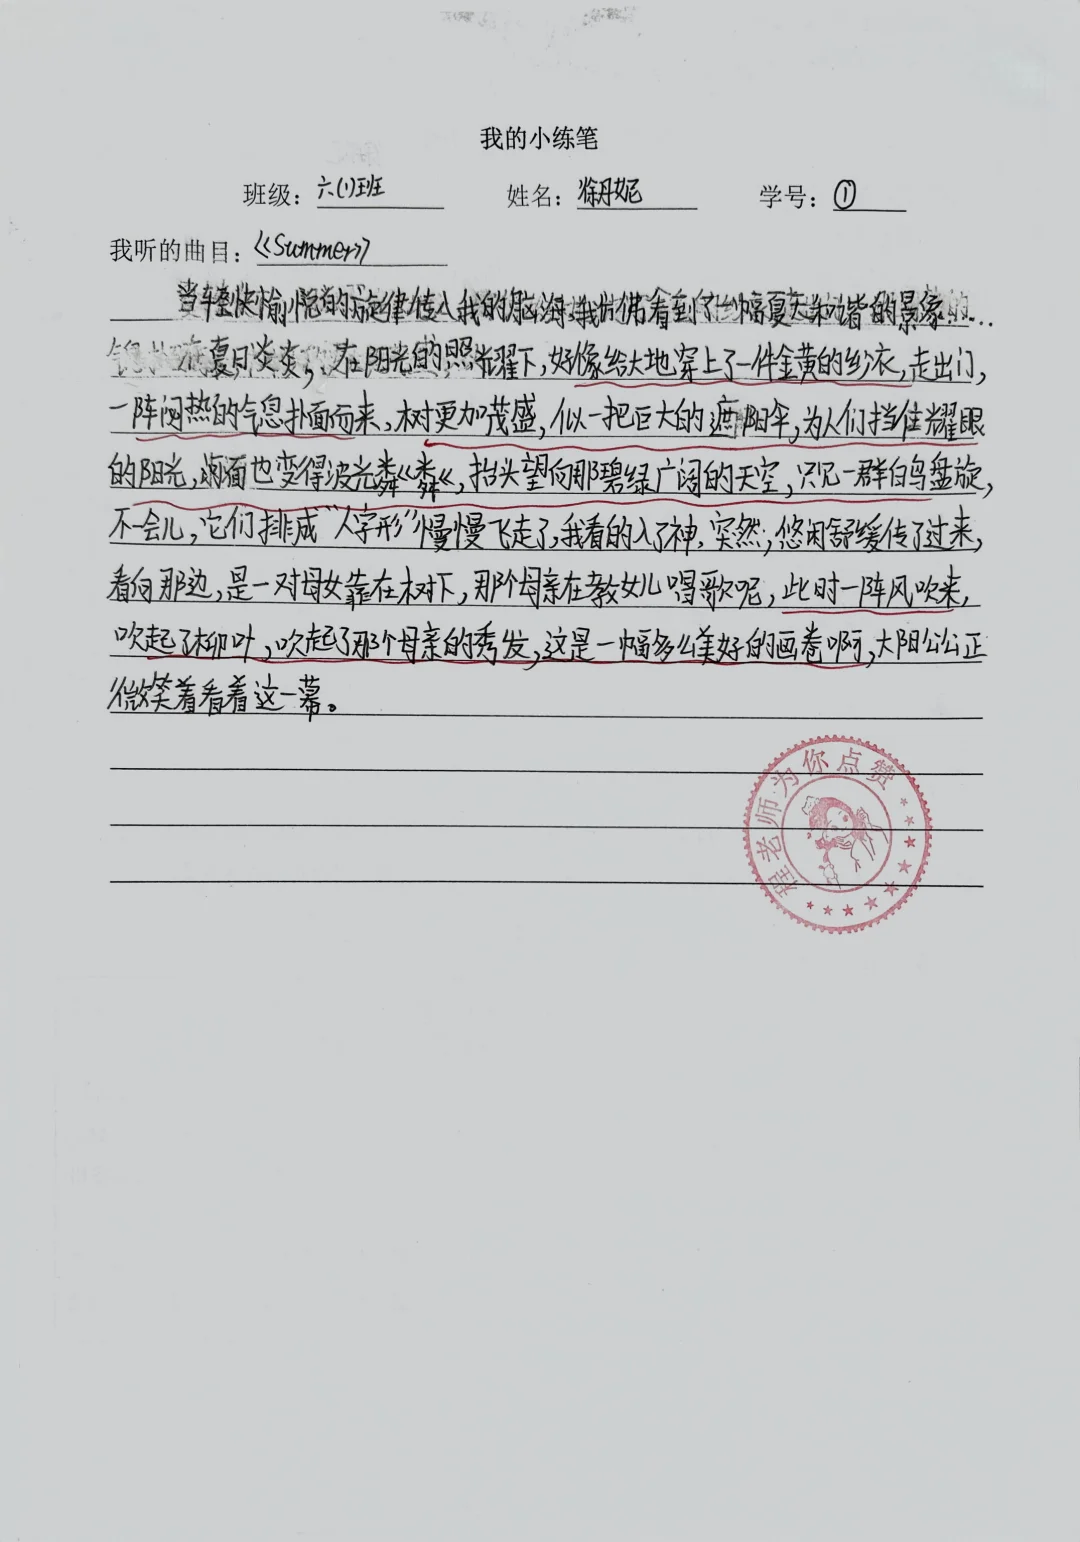 我的小练笔
班级：六(1)班 姓名：徐丹妮 学号：①
我听的曲目：《Summer》
当轻快愉悦的旋律传入我的脑海，我仿佛看到了一幅夏天和谐的景象……
夏日炎炎，在阳光的照耀下，好像给大地穿上了一件金黄的纱衣，走出门，
一阵闷热的气息扑面而来，树更加茂盛，似一把巨大的遮阳伞，为人们挡住耀眼
的阳光，湖面也变得波光粼粼，抬头望向那碧绿广阔的天空，只见一群白鸟盘旋，
不一会儿，它们排成“人字形”慢慢飞走了，我看的入了神，突然，悠闲舒缓传了过来，
看向那边，是一对母女靠在树下，那个母亲在教女儿唱歌呢，此时一阵风吹来，
吹起了柳叶，吹起了那个母亲的秀发，这是一幅多么美好的画卷啊，太阳公公正
微笑着看着这一幕。
程老师为你点赞